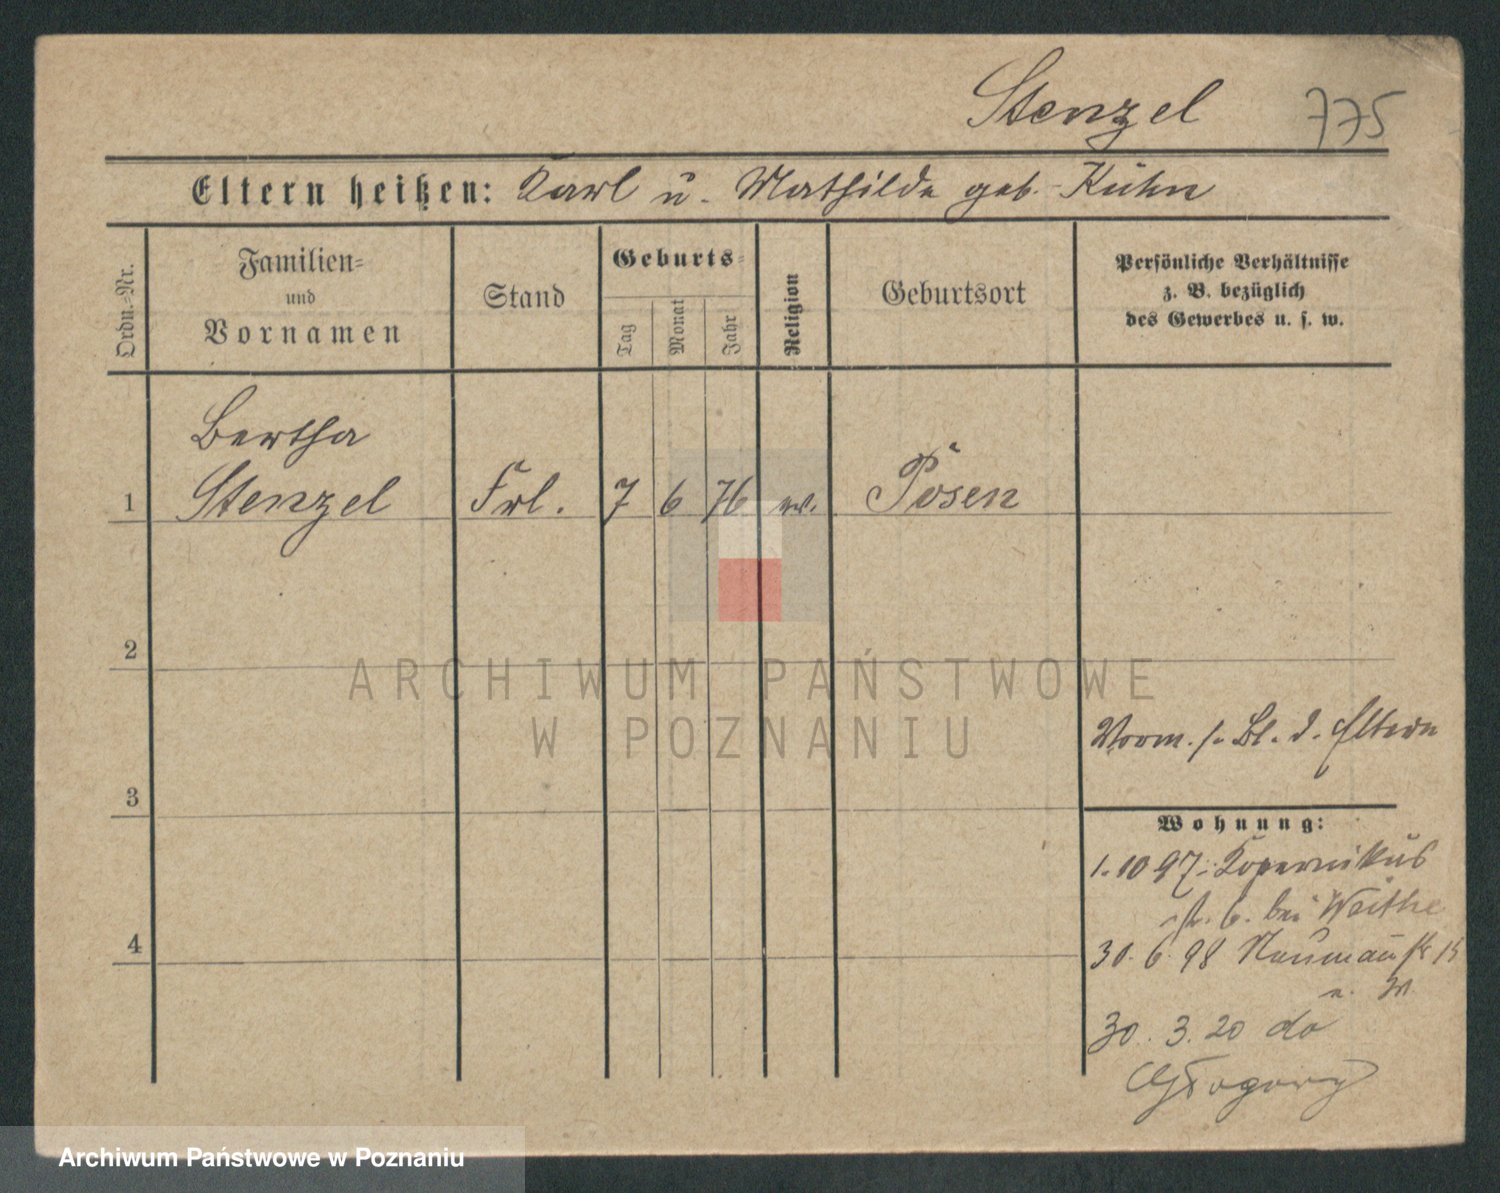 Stenzel 775
Eltern heißen: Karl u. Mathilde geb. Kühn
Ordn.-Nr.
Familien-
und
Vornamen
Stand
Geburts-
Tag
Monat
Jahr
Religion
Geburtsort
Persönliche Verhältnisse
z. B. bezüglich
des Gewerbes u. s. w.
Bertha
1 Stenzel Frl. 7 6 76 ev. Posen
2
Vorm. s. Bl. d. Eltern
3
Wohnung:
1.10 97. Kopernikus
str. 6. bei Weithe
4
30. 6. 98 Naumannstr 15
30. 3. 20 do
ARCHIWUM PAŃSTWOWE
W POZNANIU
Archiwum Państwowe w Poznaniu